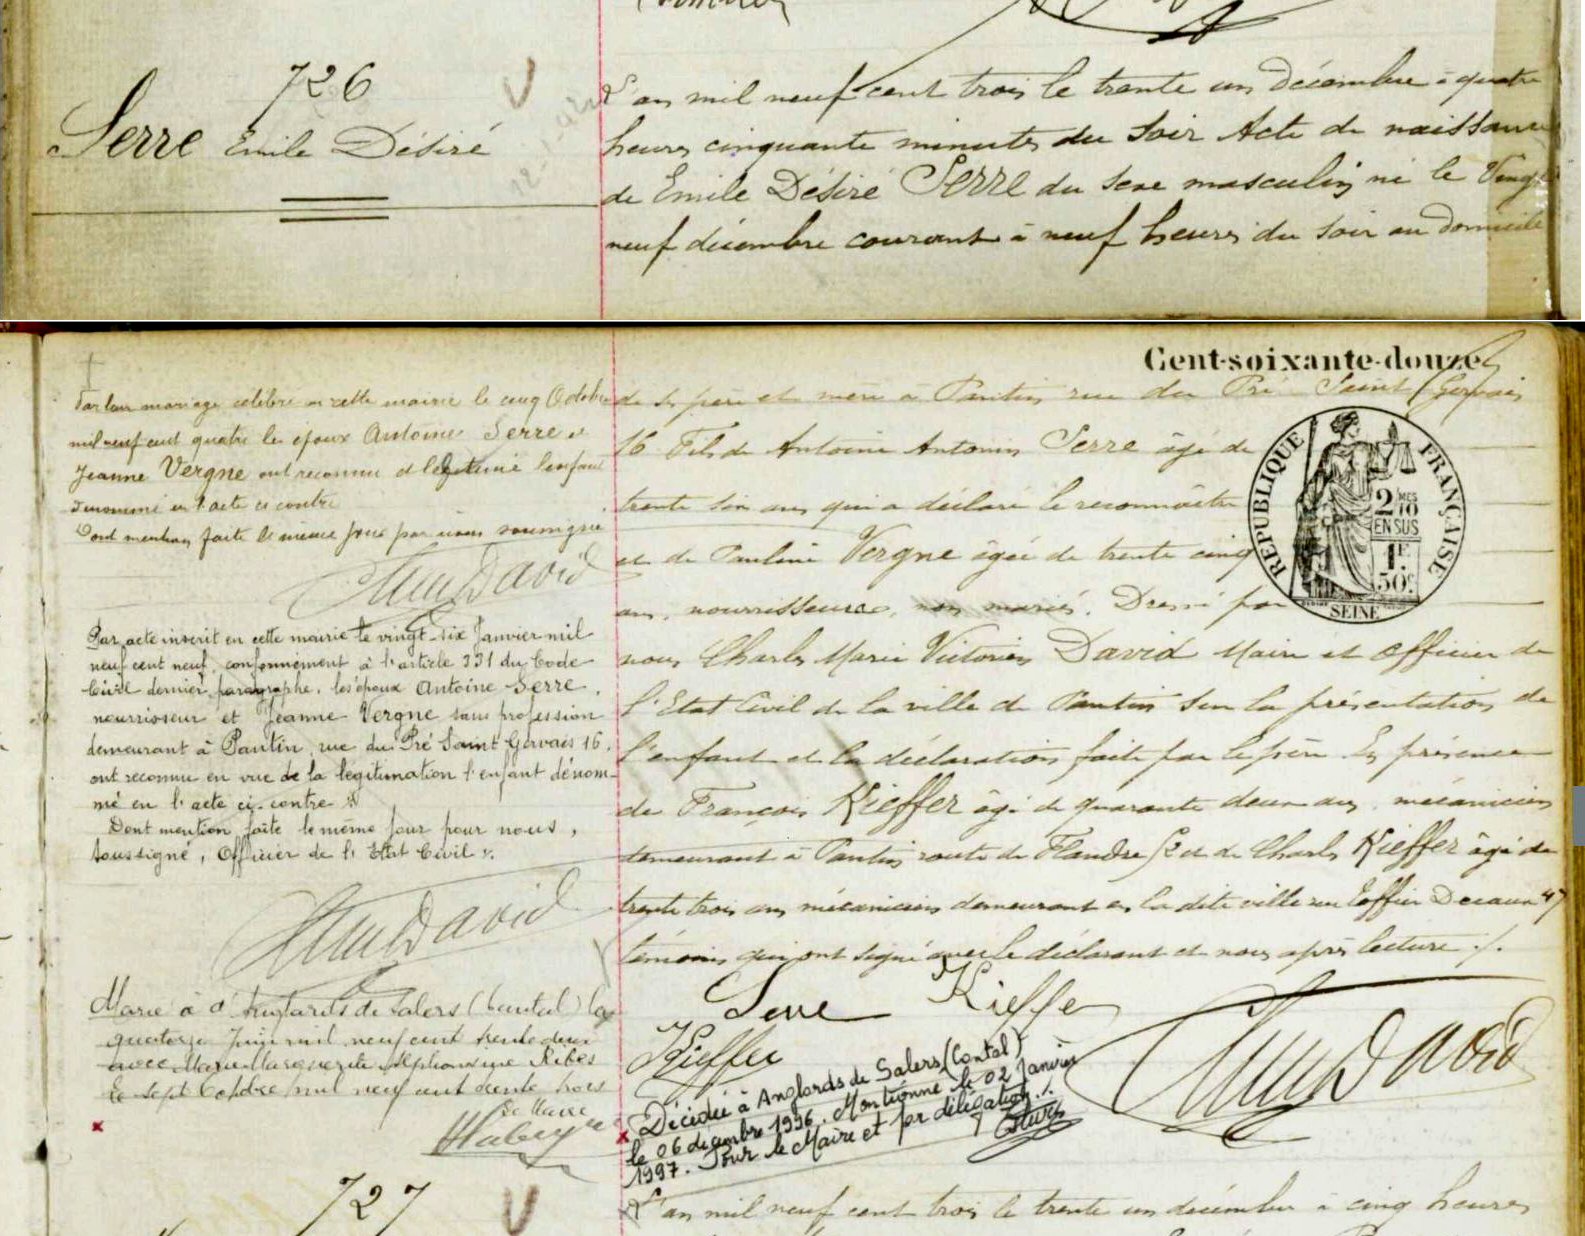 726
Serre Emile Désiré
L'an mil neuf cent trois le trente un décembre à quatre
heures cinquante minutes du soir Acte de naissance
de Emile Désiré Serre du sexe masculin né le Vingt
neuf décembre courant à neuf heures du soir au domicile
Cent-soixante-douze
de ses père et mère à Pantin rue du Pré Saint Gervais
16 Fils de Antoine Antonin Serre âgé de
trente six ans qui a déclaré le reconnaître
et de Pauline Vergne âgée de trente cinq
ans, nourrisseurs, non mariés. Dressé par
nous Charles Marie Victorien David Maire et officier de
l'Etat Civil de la ville de Pantin sur la présentation de
l'enfant et la déclaration faite par le père. En présence
de François Kieffer âgé de quarante deux ans, mécanicien
demeurant à Pantin route de Flandre 52 et de Charles Kieffer âgé de
trente trois ans mécanicien demeurant en la dite ville rue 47
témoins qui ont signé avec le déclarant et nous après lecture ./.
Serre Kieffer
Kieffer
David
RÉPUBLIQUE FRANÇAISE
2/10 MES
EN SUS
1F.
50c.
SEINE
Par leur mariage célébré en cette mairie le cinq Octobre
mil neuf cent quatre les époux Antoine Serre et
Jeanne Vergne ont reconnu et légitimé l'enfant
dénommé en l'acte ci contre
Dont mention faite le même jour par nous soussigné
David
Par acte inscrit en cette mairie le vingt-six Janvier mil
neuf cent neuf, conformément à l'article 331 du Code
Civil dernier paragraphe, les époux Antoine Serre,
nourrisseur et Jeanne Vergne sans profession
demeurant à Pantin, rue du Pré Saint Gervais 16,
ont reconnu en vue de la légitimation l'enfant dénom-
mé en l'acte ci-contre
Dont mention faite le même jour pour nous,
soussigné, Officier de l'Etat Civil
David
Marié à d'Anglards de Salers (Cantal) le
quatorze Juin mil neuf cent trente deux
avec Marie Marguerite Alphonsine Ribes
Le sept Octobre mil neuf cent trente trois
Le Maire
Décédé à Anglards de Salers (Cantal)
le 06 décembre 1996. Mentionné le 02 Janvier
1997. Pour le Maire et par délégation ./.
727
L'an mil neuf cent trois le trente un décembre à cinq heures